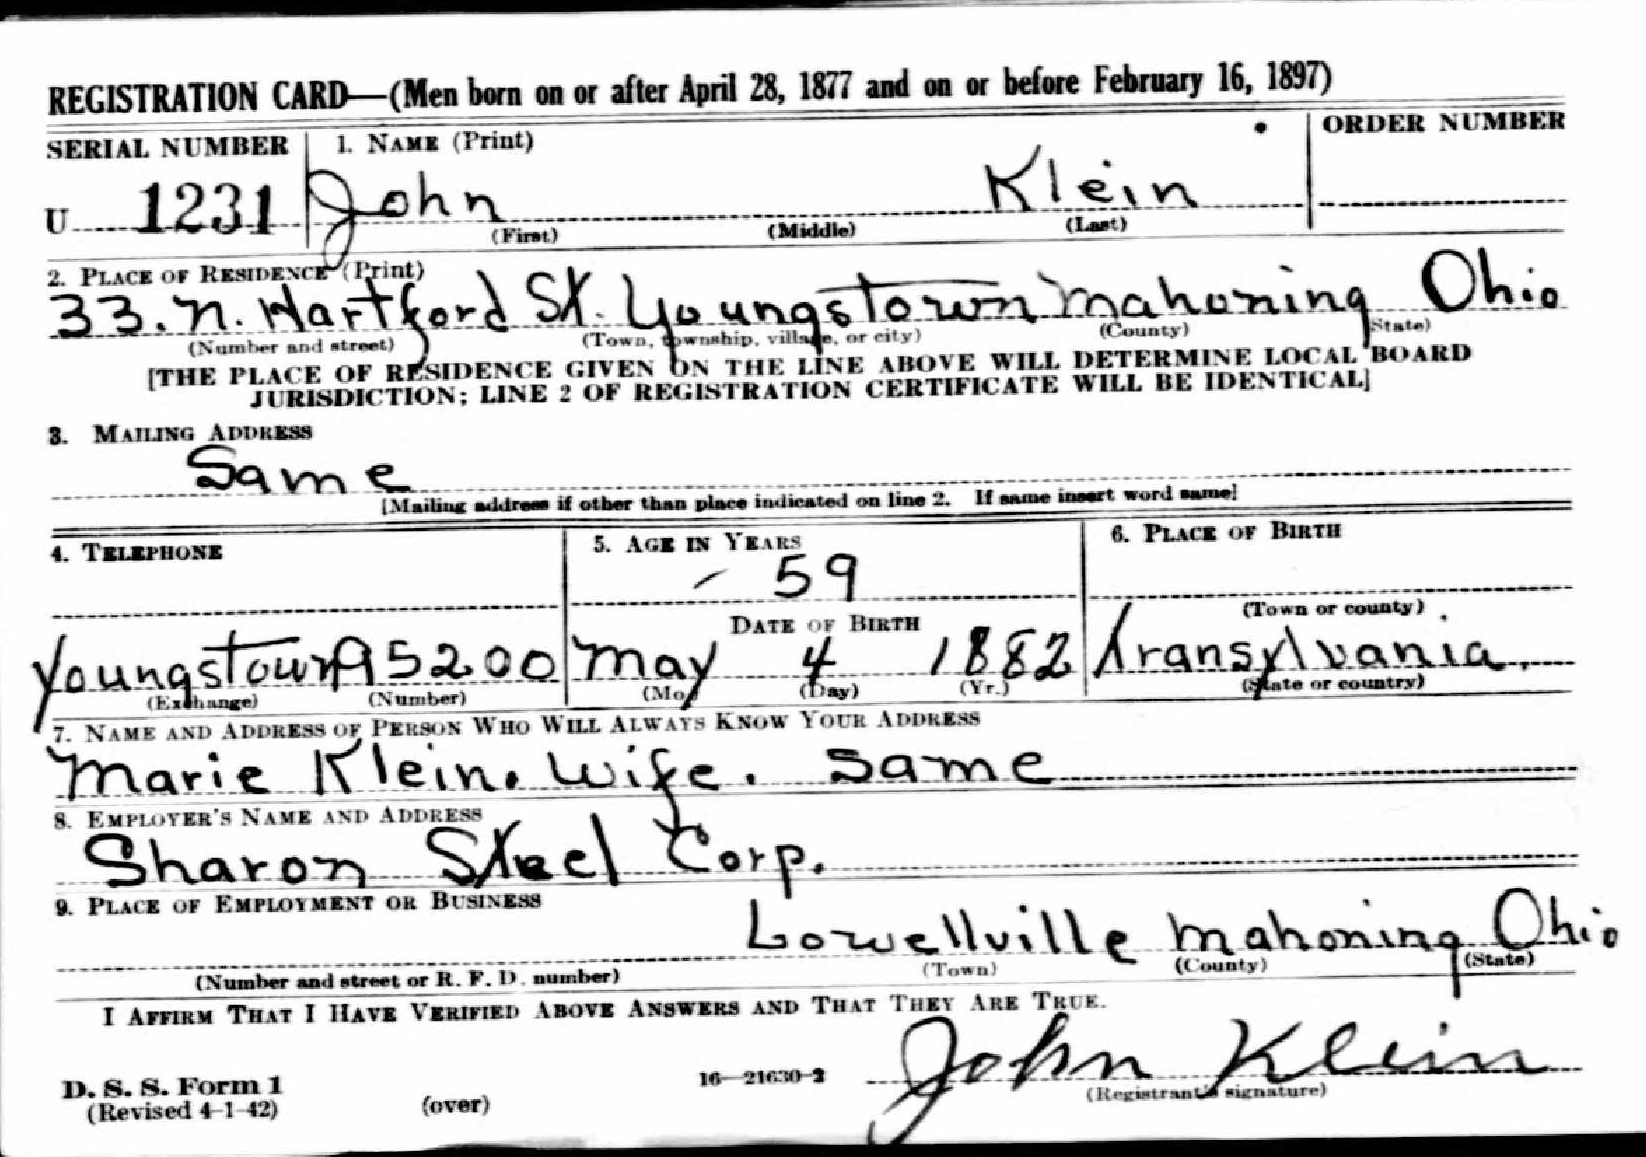 REGISTRATION CARD—(Men born on or after April 28, 1877 and on or before February 16, 1897)
SERIAL NUMBER 1. NAME (Print) ORDER NUMBER
U 1231 John Klein
(First) (Middle) (Last)
2. PLACE OF RESIDENCE (Print)
33. N. Hartford St. Youngstown Mahoning Ohio
(Number and street) (Town, township, village, or city) (County) (State)
[THE PLACE OF RESIDENCE GIVEN ON THE LINE ABOVE WILL DETERMINE LOCAL BOARD
JURISDICTION; LINE 2 OF REGISTRATION CERTIFICATE WILL BE IDENTICAL]
3. MAILING ADDRESS
Same
[Mailing address if other than place indicated on line 2. If same insert word same]
4. TELEPHONE 5. AGE IN YEARS 6. PLACE OF BIRTH
59
(Town or county)
DATE OF BIRTH
Youngstown 95200 May 4 1882 Transylvania
(Exchange) (Number) (Mo.) (Day) (Yr.) (State or country)
7. NAME AND ADDRESS OF PERSON WHO WILL ALWAYS KNOW YOUR ADDRESS
Marie Klein. Wife. Same
8. EMPLOYER'S NAME AND ADDRESS
Sharon Steel Corp.
9. PLACE OF EMPLOYMENT OR BUSINESS
Lowellville Mahoning Ohio
(Number and street or R. F. D. number) (Town) (County) (State)
I AFFIRM THAT I HAVE VERIFIED ABOVE ANSWERS AND THAT THEY ARE TRUE.
John Klein
D. S. S. Form 1 16—21630-2 (Registrant's signature)
(Revised 4-1-42) (over)